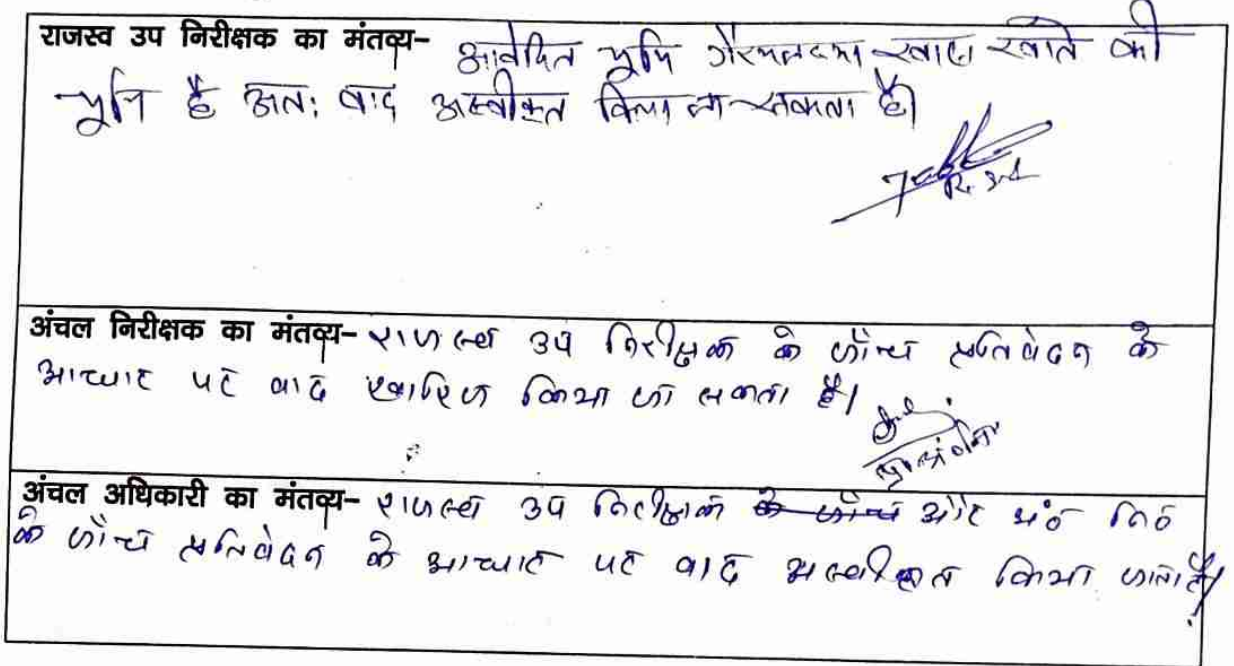 राजस्व उप निरीक्षक का मंतव्य- आवेदित भूमि गैरमजरूआ खास खाते की
भूमि है अत: वाद अस्वीकृत किया जा सकता है।
अंचल निरीक्षक का मंतव्य- राजस्व उप निरीक्षक के जाँच प्रतिवेदन के
आधार पर वाद खारिज किया जा सकता है।
अंचल अधिकारी का मंतव्य- राजस्व उप निरीक्षक के जाँच और अं० नि०
के जाँच प्रतिवेदन के आधार पर वाद अस्वीकृत किया जाता है।